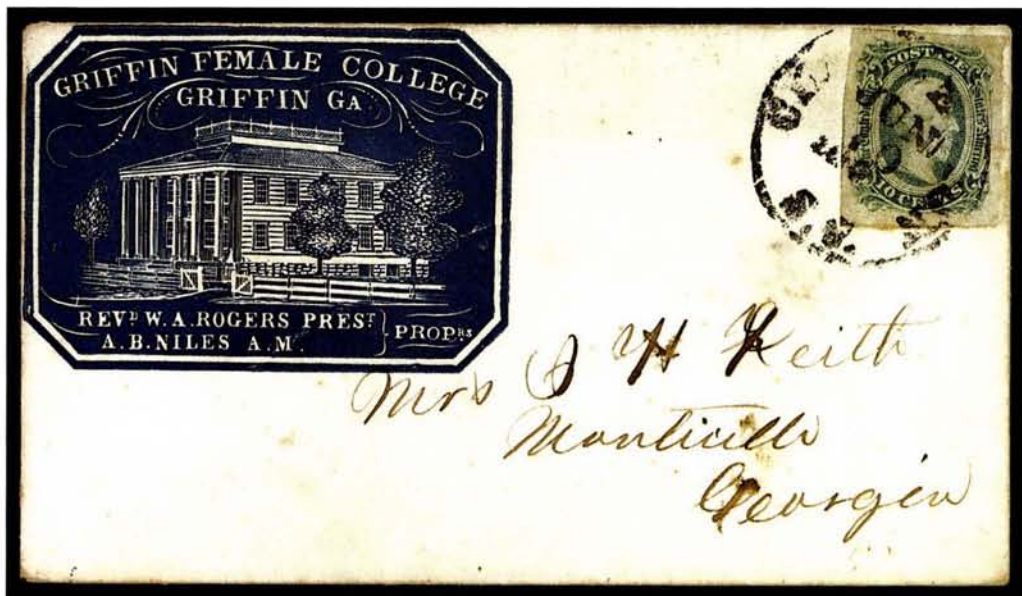 GRIFFIN FEMALE COLLEGE
GRIFFIN GA
REVD W.A. ROGERS PREST
A.B. NILES A.M.
PROPRS
POSTAGE
10 CENTS
JUN
Mrs H Keith
Monticello
Georgia